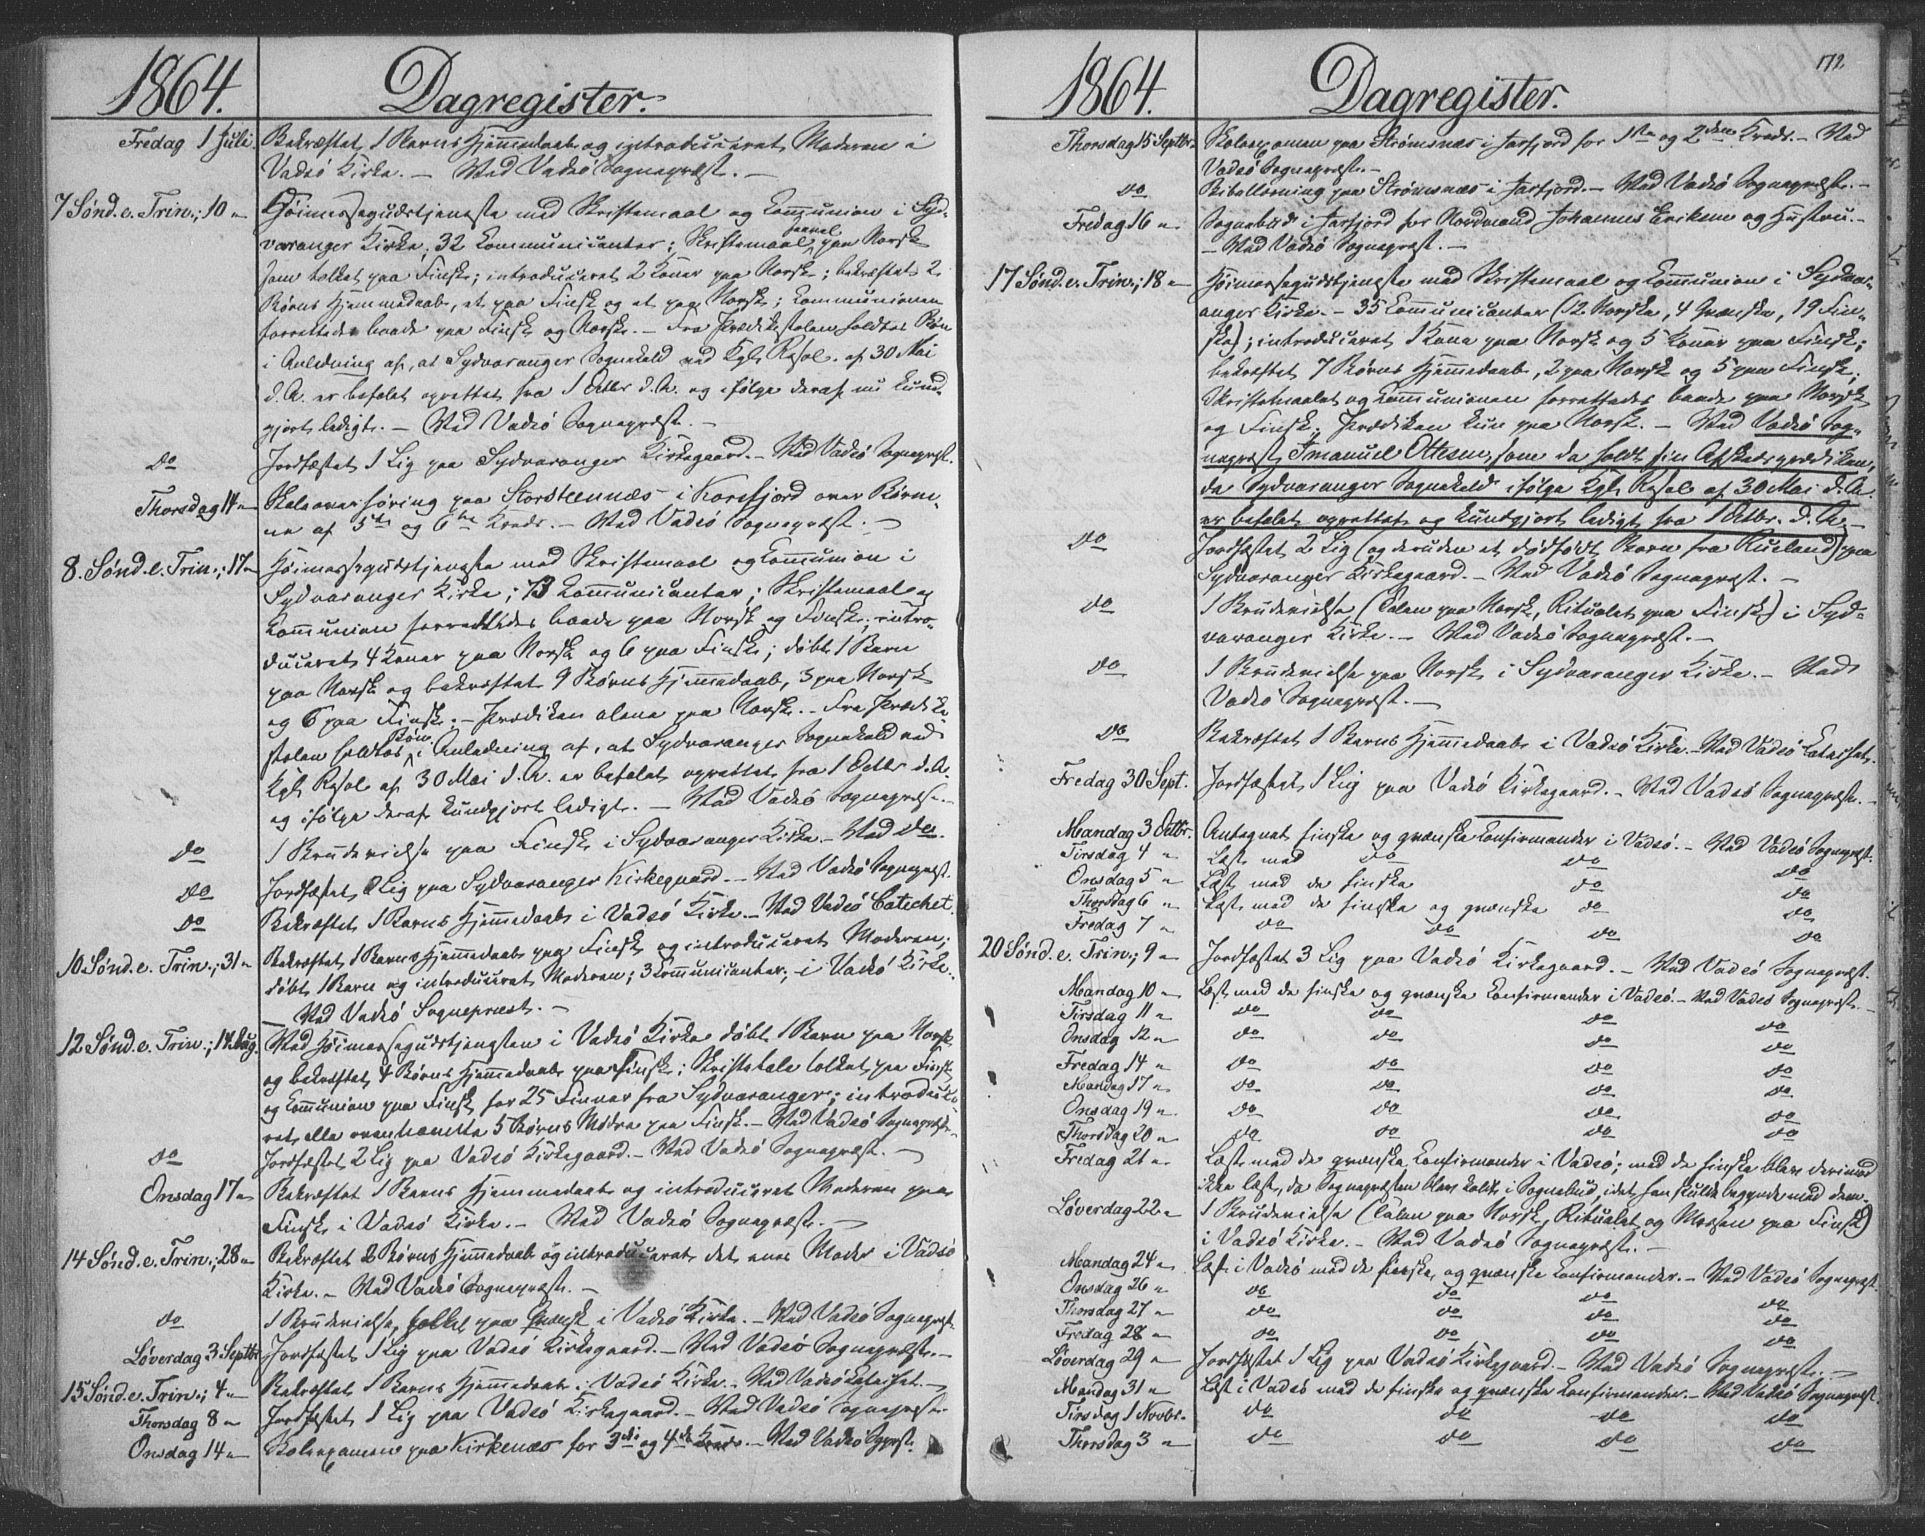 1864. Dagregister.
Fredag 1 Juli. Bekræftet 1 Barns Hjemmedaab og introduceret Moderen i
Vadsö Kirke. — Ved Vadsö Sognepræst. —
7 Sönd. e. Trin.; 10 " Höimessegudstjeneste med Skriftemaal og Communion i Syd-
varanger Kirke; 32 Communicanter; Skriftemaal saavel paa Norsk
som tolket paa Finsk; introduceret 2 Koner paa Norsk; bekræftet 2
Börns Hjemmedaab, et paa Finsk og et paa Norsk; Communionen
forrettedes baade paa Finsk og Norsk. — Fra Prædikestolen holdtes Bön
i Anledning af, at Sydvaranger Sognekald ved Kgl. Resol. af 30 Mai
d. A. er befalet oprettet fra 1 Octbr d. A. og ifölge deraf nu kund-
gjort ledigt. — Ved Vadsö Sognepræst. —
do Jordfæstet 1 Lig paa Sydvaranger Kirkegaard. — Ved Vadsö Sognepræst.
Thorsdag 14 " Skoleoverhöring paa Storsteennæs i Korsfjord over Börne-
ne af 5te og 6te Kreds. — Ved Vadsö Sognepræst. —
8. Sönd. e. Trin.; 17 " Höimessegudstjeneste med Skriftemaal og Communion i
Sydvaranger Kirke; 73 Communicanter; Skriftemaal og
Communion forrettedes baade paa Norsk og Finsk; intro-
duceret 4 Koner paa Norsk og 6 paa Finsk; döbt 1 Barn
paa Norsk og bekræftet 9 Börns Hjemmedaab, 3 paa Norsk
og 6 paa Finsk. — Prædiken alene paa Norsk. — Fra Prædike-
stolen holdtes Bön i Anledning af, at Sydvaranger Sognekald ved
Kgl. Resol. af 30 Mai d. A. er befalet oprettet fra 1 Octbr d. A.
og ifölge deraf kundgjort ledigt. — Ved Vadsö Sognepræst. —
do 1 Brudevielse paa Finsk i Sydvaranger Kirke. — Ved do.
do Jordfæstet 2 Lig paa Sydvaranger Kirkegaard. — Ved Vadsö Sognepræst.
do Bekræftet 1 Barns Hjemmedaab i Vadsö Kirke. — Ved Vadsö Catechet.
10 Sönd. e. Trin.; 31 " Bekræftet 1 Barns Hjemmedaab paa Finsk og introduceret Moderen;
döbt 1 Barn og introduceret Moderen; 3 Communicanter; i Vadsö Kirke.
— Ved Vadsö Sognepræst. —
12 Sönd. e. Trin.; 14 Aug. Ved Höimessegudstjenesten i Vadsö Kirke döbt 1 Barn paa Norsk
og bekræftet 4 Börns Hjemmedaab paa Finsk; Skriftetale tolket paa Finsk
og Communion paa Finsk for 25 Finner fra Sydvaranger; introduce-
ret alle ovennævnte 5 Börns Mödre paa Finsk. — Ved Vadsö Sognepræst. —
do Jordfæstet 2 Lig paa Vadsö Kirkegaard. — Ved Vadsö Sognepræst. —
Onsdag 17 " Bekræftet 1 Barns Hjemmedaab og introduceret Moderen paa
Finsk i Vadsö Kirke. — Ved Vadsö Sognepræst. —
14 Sönd. e. Trin.; 28 " Bekræftet 2 Börns Hjemmedaab og introduceret det enes Moder i Vadsö
Kirke. — Ved Vadsö Sognepræst. —
do 1 Brudevielse, tolket paa Qvænsk i Vadsö Kirke. — Ved Vadsö Sognepræst.
Löverdag 3 Septbr. Jordfæstet 1 Lig paa Vadsö Kirkegaard. — Ved Vadsö Sognepræst. —
15 Sönd. e. Trin.; 4 " Bekræftet 1 Barns Hjemmedaab i Vadsö Kirke. — Ved Vadsö Catechet. —
Thorsdag 8 " Jordfæstet 1 Lig paa Vadsö Kirkegaard. — Ved Vadsö Sognepræst.
Onsdag 14 " Skoleexamen paa Kirkenæs for 3die og 4de Kreds. — Ved Vadsö Sognpræst.
172
1864. Dagregister.
Thorsdag 15 Septbr. Skoleexamen paa Strömsnæs i Jarfjord for 1ste og 2den Kreds. — Ved
Vadsö Sognepræst. —
do Bibellæsning paa Strömsnæs i Jarfjord. — Ved Vadsö Sognepræst. —
Fredag 16 " Sognebud i Jarfjord for Nordmand Johannes Eriksen og Hustru. —
— Ved Vadsö Sognepræst. —
17 Sönd. e. Trin.; 18 " Höimessegudstjeneste med Skriftemaal og Communion i Sydvar-
anger Kirke. — 35 Communicanter (12 Norske, 4 Qvænske, 19 Fin-
ske); introduceret 1 Kone paa Norsk og 5 Koner paa Finsk;
bekræftet 7 Börns Hjemmedaab, 2 paa Norsk og 5 paa Finsk;
Skriftemaalet og Communionen forrettedes baade paa Norsk
og Finsk; Prædiken kun paa Norsk. — Ved Vadsö Sog-
nepræst Immanuel Ottesen, som da holdt sin Afskedsprædiken,
da Sydvaranger Sognekald ifölge Kgl. Resol. af 30 Mai d. A.
er befalet oprettet og kundgjort ledigt fra 1 Octbr. d. A. —
do Jordfæstet 2 Lig (og desuden et dödfödt Barn fra Rusland) paa
Sydvaranger Kirkegaard. — Ved Vadsö Sognepræst. —
do 1 Brudevielse (Talen paa Norsk, Ritualet paa Finsk) i Syd-
varanger Kirke. — Ved Vadsö Sognepræst. —
do 1 Brudevielse paa Norsk i Sydvaranger Kirke. — Ved
Vadsö Sognepræst. —
do Bekræftet 1 Barns Hjemmedaab i Vadsö Kirke. — Ved Vadsö Catechet.
Fredag 30 Sept. Jordfæstet 1 Lig paa Vadsö Kirkegaard. — Ved Vadsö Sognepræst. —
Mandag 3 Octbr. Antegnet finske og qvænske Confirmander i Vadsö. — Ved Vadsö Sognepræst.
Tirsdag 4 " Læst med do do do
Onsdag 5 " Læst med de finske do do
Thorsdag 6 " Læst med de finske og qvænske do do
Fredag 7 " do do do do
20 Sönd. e. Trin.; 9 " Jordfæstet 3 Lig paa Vadsö Kirkegaard. — Ved Vadsö Sognepræst.
Mandag 10 " Læst med de finske og qvænske Confirmander i Vadsö. — Ved Vadsö Sognepræst. —
Tirsdag 11 " do do do do
Onsdag 12 " do do do do
Fredag 14 " do do do do
Mandag 17 " do do do do
Onsdag 19 " do do do do
Thorsdag 20 " do do do do
Fredag 21 " Læst med de qvænske Confirmander i Vadsö; med de finske blev derimod
ikke læst, da Sognepræsten blev kaldt i Sognebud, idet han skulde begynde med dem.
Löverdag 22 " 1 Brudevielse (Talen paa Norsk, Ritualet og Messen paa Finsk)
i Vadsö Kirke. — Ved Vadsö Sognepræst. —
Mandag 24 " Læst i Vadsö med de finske og qvænske Confirmander. — Ved Vadsö Sognepræst.
Onsdag 26 " do do do do
Thorsdag 27 " do do do do
Fredag 28 " do do do do
Löverdag 29 " Jordfæstet 1 Lig paa Vadsö Kirkegaard. — Ved Vadsö Sognepræst. —
Mandag 31 " Læst i Vadsö med de finske og qvænske Confirmander. — Ved Vadsö Sognepræst.
Tirsdag 1 Novbr. do do do do
Thorsdag 3 " do do do do